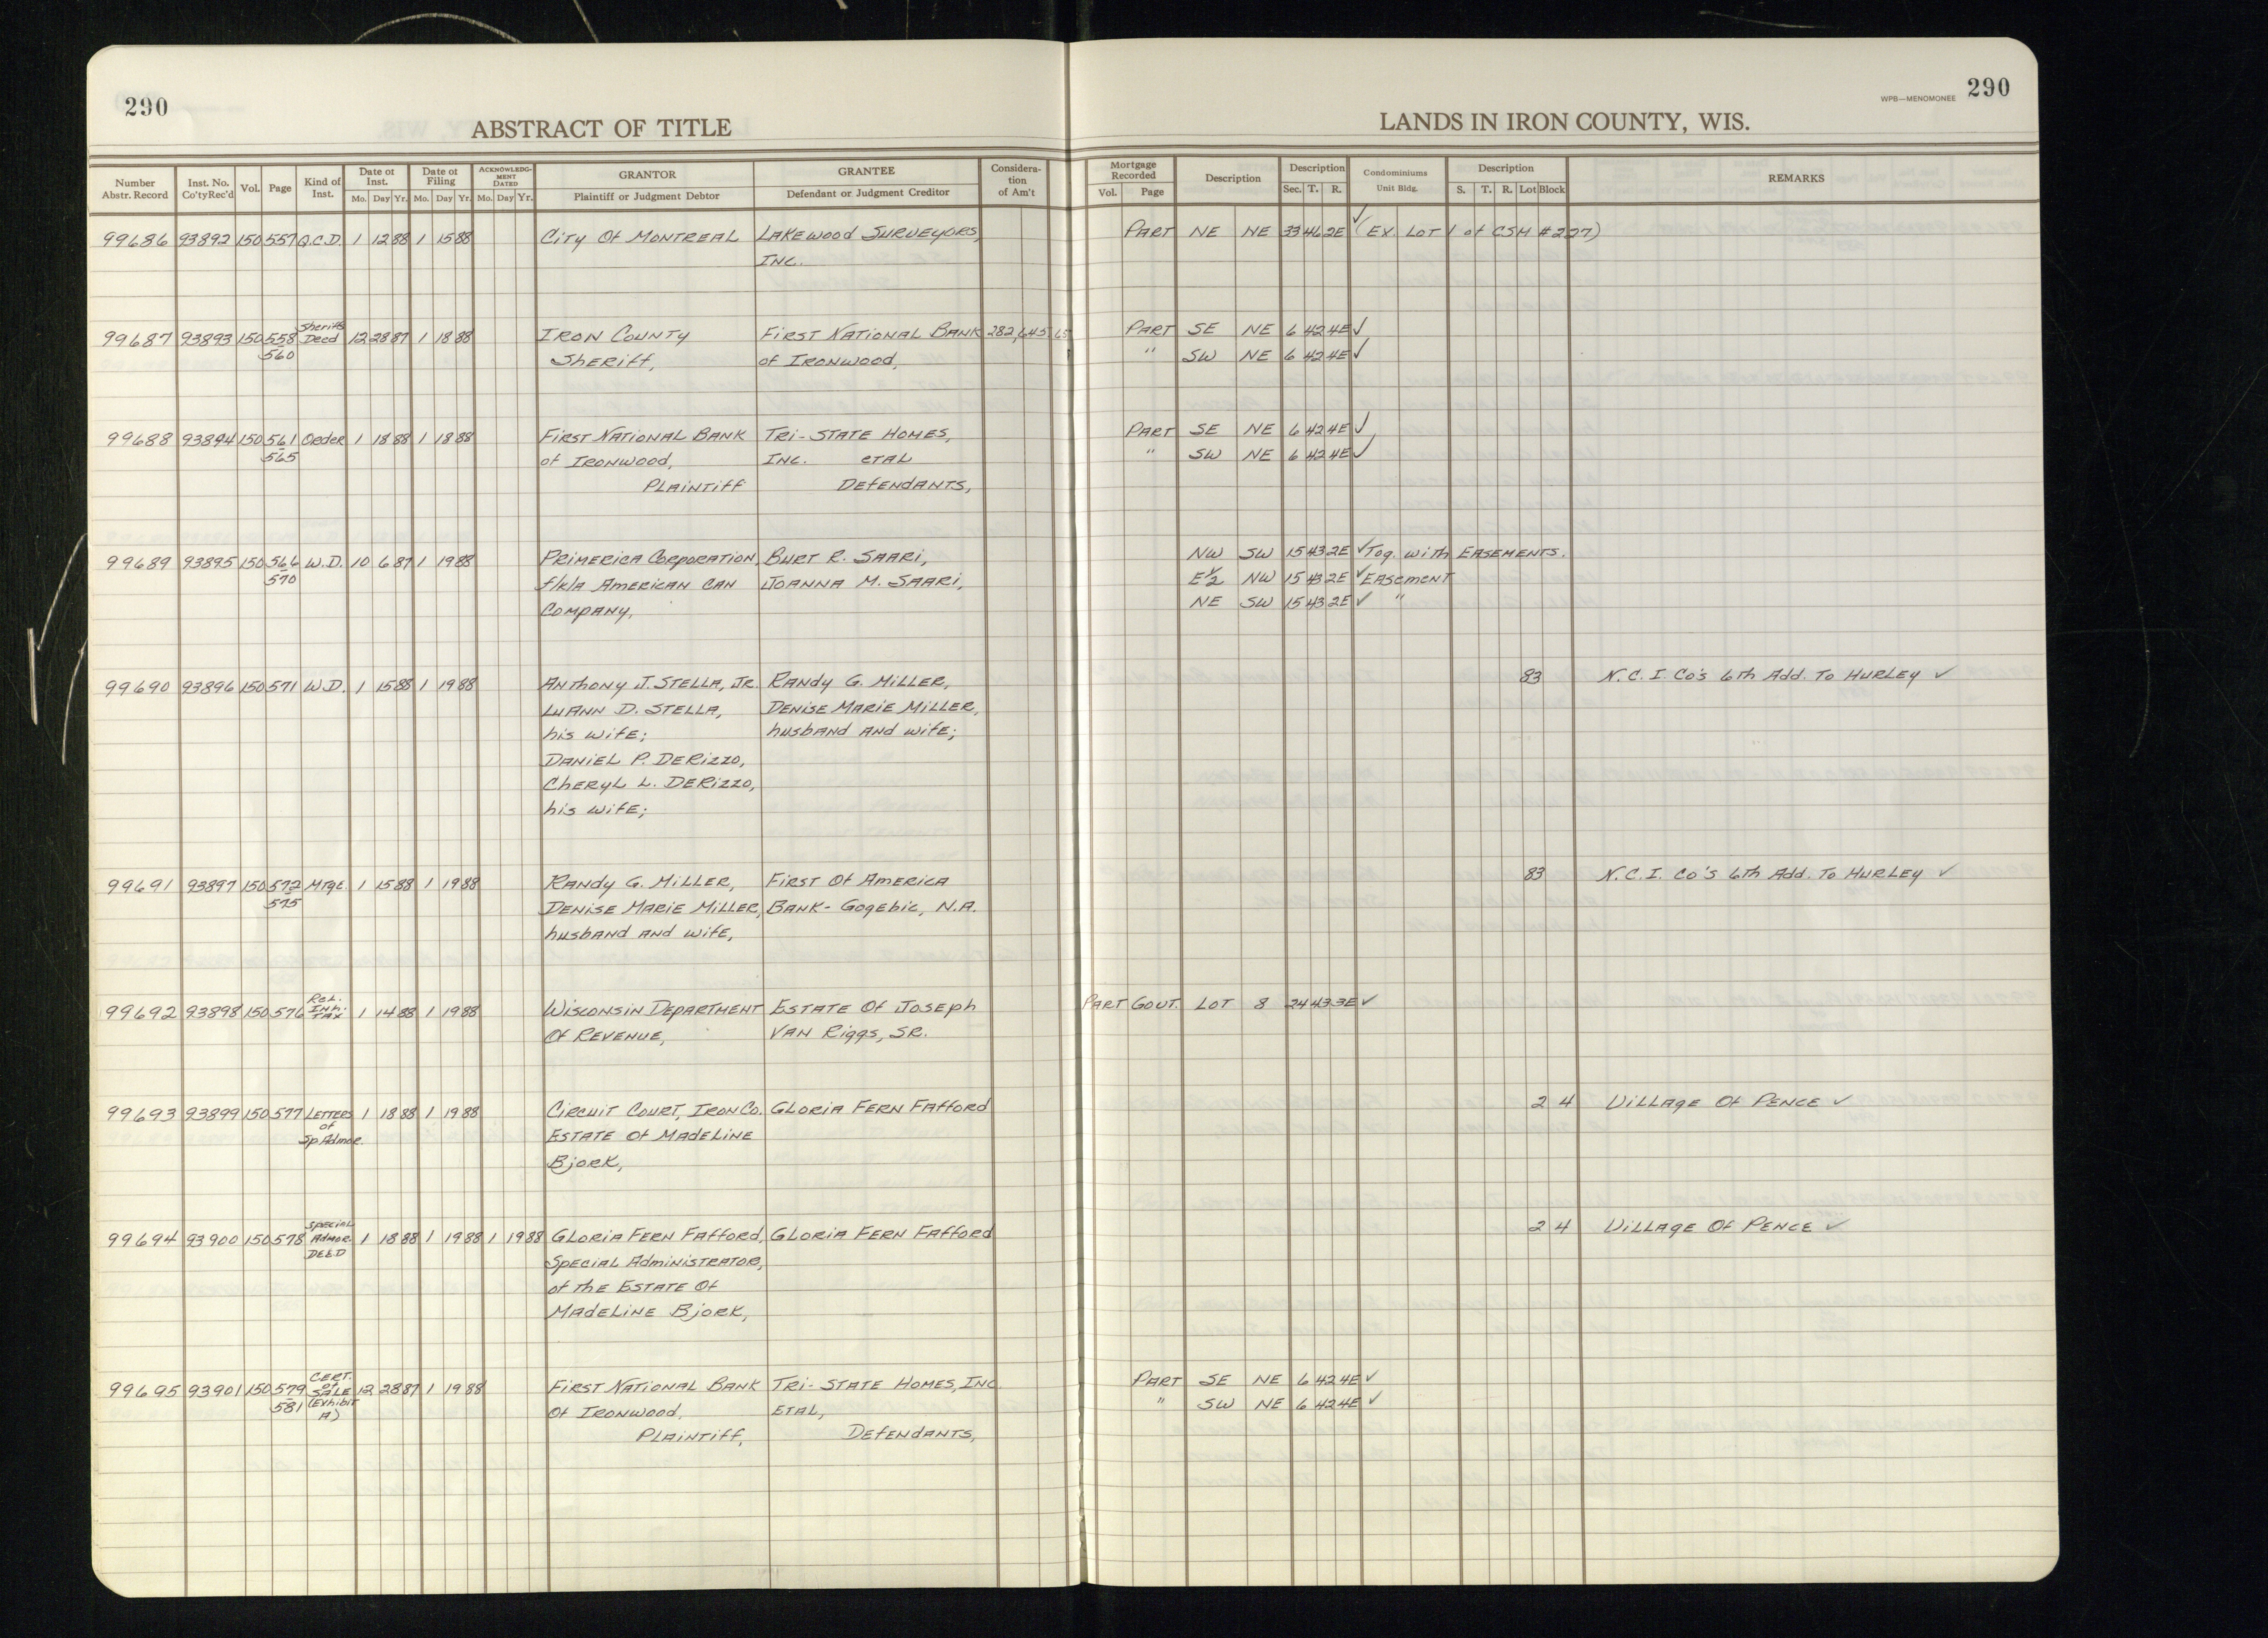 290
ABSTRACT OF TITLE
LANDS IN IRON COUNTY, WIS.
WPB—MENOMONEE 290
Number Abstr. Record | Inst. No. Co'ty Rec'd | Vol. | Page | Kind of Inst. | Date of Inst. Mo. Day Yr. | Date of Filing Mo. Day Yr. | ACKNOWLEDGMENT DATED Mo. Day Yr. | GRANTOR Plaintiff or Judgment Debtor | GRANTEE Defendant or Judgment Creditor | Consideration of Am't | Mortgage Recorded Vol. Page | Description | Description Sec. T. R. | Condominiums Unit Bldg. | Description S. T. R. Lot Block | REMARKS
99686 93892 150 557 Q.C.D. 1 12 88 1 15 88 City Of Montreal Lakewood Surveyors, Part NE NE 33 46 2E ✓ (Ex. Lot 1 of CSM #227)
Inc.
99687 93893 150 558 Sheriffs Deed 12 28 87 1 18 88 Iron County First National Bank 282,645 65 Part SE NE 6 42 4E ✓
560 Sheriff, of Ironwood, " SW NE 6 42 4E ✓
99688 93894 150 561 Order 1 18 88 1 18 88 First National Bank Tri-State Homes, Part SE NE 6 42 4E ✓
565 of Ironwood, Inc. etal " SW NE 6 42 4E ✓
Plaintiff Defendants,
99689 93895 150 566 W.D. 10 6 87 1 19 88 Primerica Corporation, Burt R. Saari, NW SW 15 43 2E ✓ Tog. with Easements.
570 f/k/a American Can Joanna M. Saari, E½ NW 15 43 2E ✓ Easement
Company, NE SW 15 43 2E ✓ "
99690 93896 150 571 W.D. 1 15 88 1 19 88 Anthony J. Stella, Jr. Randy G. Miller, 83 N.C.I. Co's 6th Add. To Hurley ✓
LuAnn D. Stella, Denise Marie Miller,
his wife; husband and wife;
Daniel P. DeRizzo,
Cheryl L. DeRizzo,
his wife;
99691 93897 150 572 Mtge. 1 15 88 1 19 88 Randy G. Miller, First Of America 83 N.C.I. Co's 6th Add. To Hurley ✓
575 Denise Marie Miller, Bank- Gogebic, N.A.
husband and wife,
99692 93898 150 576 Rel. Inh. Tax 1 14 88 1 19 88 Wisconsin Department Estate Of Joseph Part Govt. Lot 8 24 43 3E ✓
Of Revenue, Van Riggs, Sr.
99693 93899 150 577 Letters of Sp Admor. 1 18 88 1 19 88 Circuit Court, Iron Co. Gloria Fern Fafford 2 4 Village Of Pence ✓
Estate Of Madeline
Bjork,
99694 93900 150 578 Special Admor Deed 1 18 88 1 19 88 1 19 88 Gloria Fern Fafford, Gloria Fern Fafford 2 4 Village Of Pence ✓
Special Administrator,
of the Estate Of
Madeline Bjork,
99695 93901 150 579 Cert. of Sale (Exhibit A) 12 28 87 1 19 88 First National Bank Tri-State Homes, Inc Part SE NE 6 42 4E ✓
581 Of Ironwood, Etal, " SW NE 6 42 4E ✓
Plaintiff, Defendants,